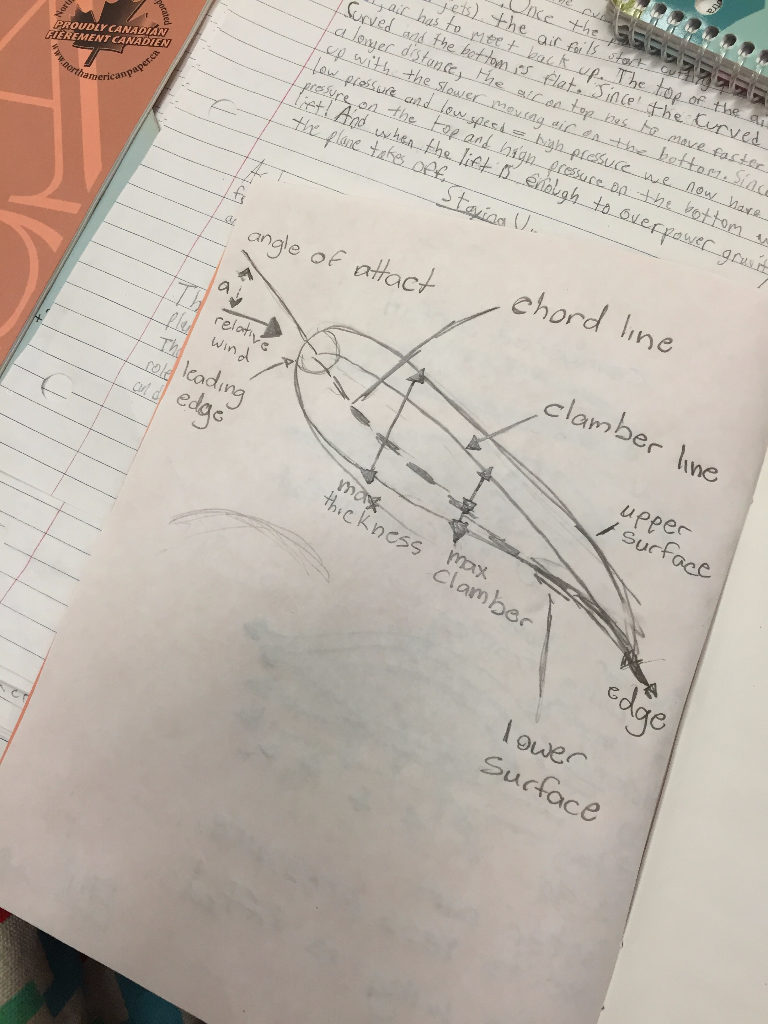 PROUDLY CANADIAN
FIÈREMENT CANADIEN
www.northamericanpaper.ca
jets) the air foils start
air has to meet back up. The top of the
curved and the bottom is flat. Since the curved
a longer distance, the air on top has to move faster
up with the slower moving air on the bottom. Since
low pressure and low speed = high pressure we now have
pressure on the top and high pressure on the bottom
lift! And when the lift is enough to overpower
the plane takes off.
Staying
angle of attact
a
relative
wind
leading
edge
chord line
clamber line
upper
surface
max
thickness
max
clamber
edge
lower
surface